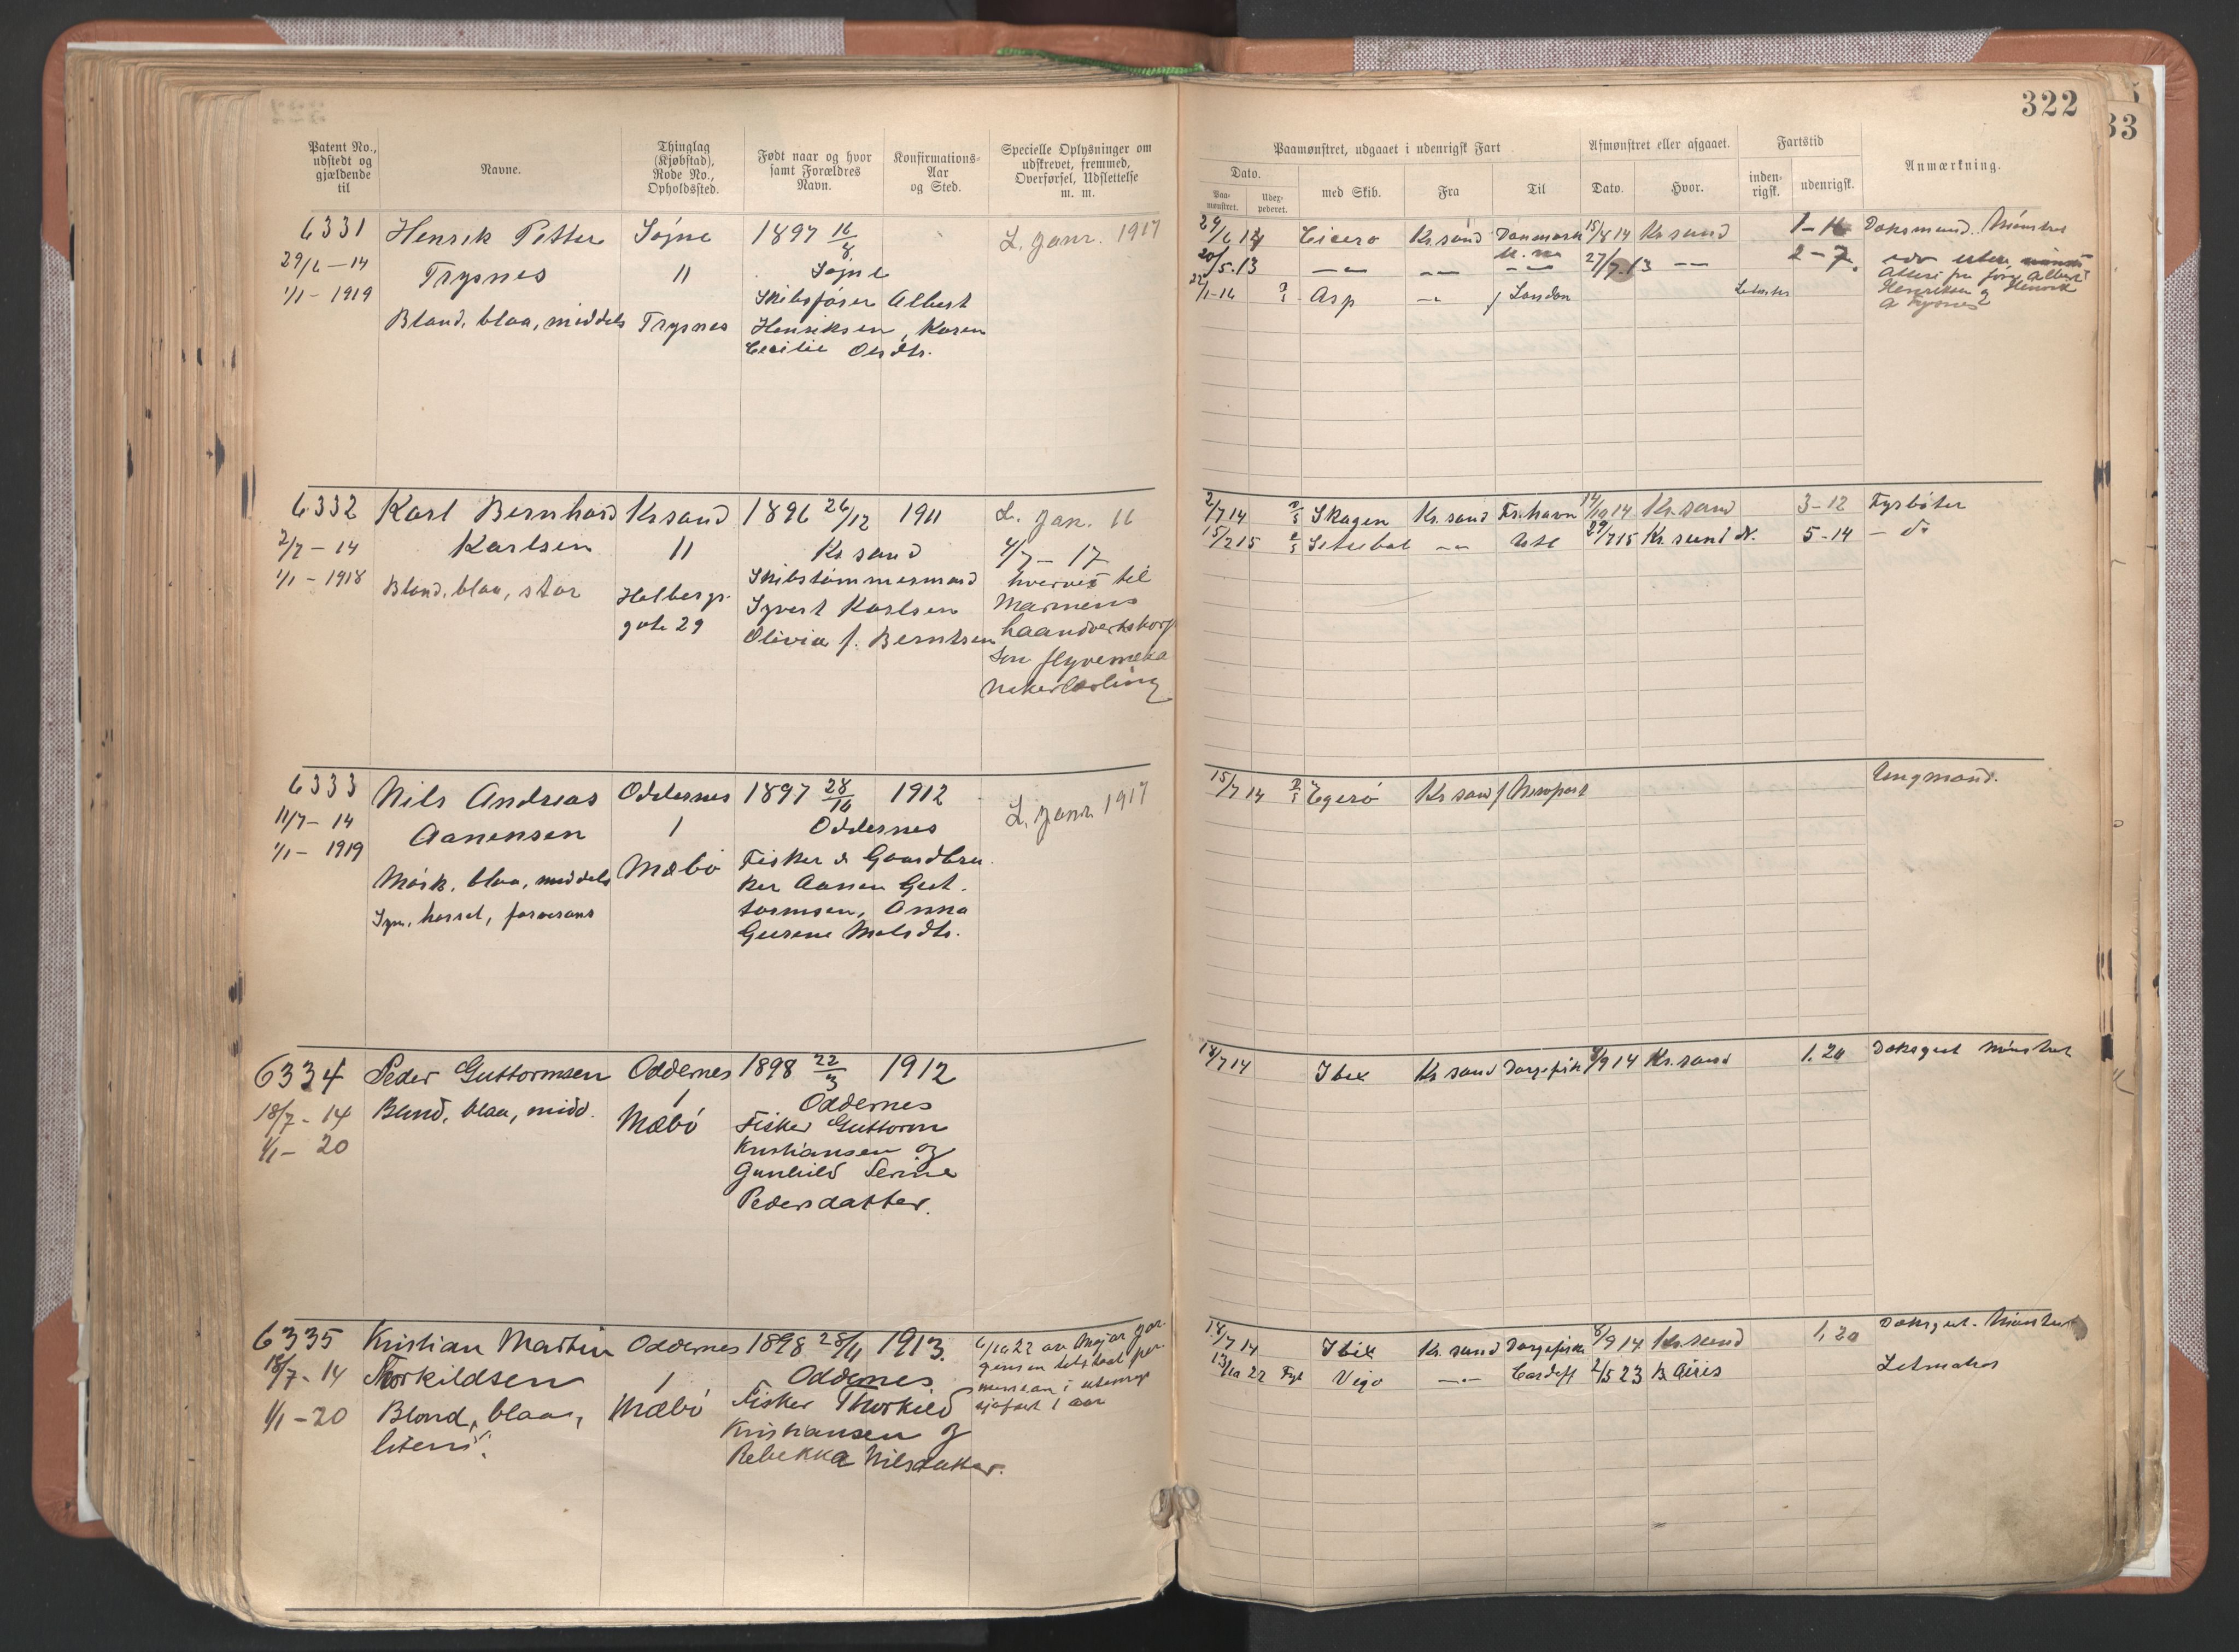 322
33
Patent No., udstedt og gjældende til
Navne.
Thinglag (Kjøbstad), Rode No., Opholdssted.
Født naar og hvor samt Forældres Navn.
Konfirmations-Aar og Sted.
Specielle Oplysninger om udskrevet, fremmed, Overførsel, Udslettelse m. m.
Paamønstret, udgaaet i udenrigsk Fart
Afmønstret eller afgaaet.
Fartstid
Anmærkning.
Dato.
Paa-mønstret.
Udex-pederet.
med Skib.
Fra
Til
Dato.
Hvor.
inden-rigsk.
udenrigsk.
6331 Henrik Petter Søgne 1897 16/8 L. Janr. 1917
29/6 - 14 Trysnes 11 Søgne
1/1 - 1919 Skibsfører Albert
Blond, blaa, middels Trysnes Henriksen, Karen
Cecilie Olsdtr.
29/6 14 Cicero Kr.sand Danmark 15/8 14 Kr.sand Dæksmand. Mønstret
20/5.13 27/7.13 2-7
Asp London
Henriksen og Henrik
6332 Karl Bernhard Kr.sand 1896 26/12 1911 L. Jan. 16
2/7 - 14 Karlsen 11 Kr.sand 4/7 - 17
1/1 - 1918 Blond, blaa, stor Skibstømmermand hvervet til
Holbergs- Syvert Karlsen Marinens
gate 29 Olivia f. Berntsen haandverkskorps
som flyveme
2/7 14 Skagen Kr.sand Fr.havn 14/10 14 Kr.sand 3-12 Fyrbøter
15/2 15 Setubal 29/7 15 Kr.sund N. 5-14 - do
6333 Nils Andreas Oddernes 1897 28/10 1912 L. Janr. 1917
11/7 - 14 Aanensen 1 Oddernes
1/1 - 1919 Mørk, blaa, middels Mæbø Fisker & Gaardbru
Syn, hørsel, farvesans ker Aanen Gut-
tormsen, Anna
15/7 14 Egerø Kr.sand Newport Ungmand.
6334 Peder Guttormsen Oddernes 1898 22/3 1912
18/7 - 14 Blond, blaa, midd. 1 Oddernes
1/1 - 20 Mæbø Fisker Guttorm
Kristiansen og
Gunhild Serine
Pedersdatter.
18/7 14 Ibex Kr.sand 8/9 14 Kr.sand 1.20 Dæksgut Mønstret
6335 Kristian Martin Oddernes 1898 28/11 1913.
18/7 - 14 Thorkildsen 1 Oddernes
1/1 - 20 Blond, blaa, Mæbø Fisker Thorkild
liten. Kristiansen og
Rebekka Nilsdatter.
6/10 22 av Major Jør-
gensen tilstaat per-
mission i utenrigs
sjøfart 1 aar
18/7 14 Ibix Kr.sand 8/9 14 Kr.sand 1.20 Dæksgut. Mønstret
13/10 22 Vigo Cardiff 2/5 23 B. Aires Letmatros